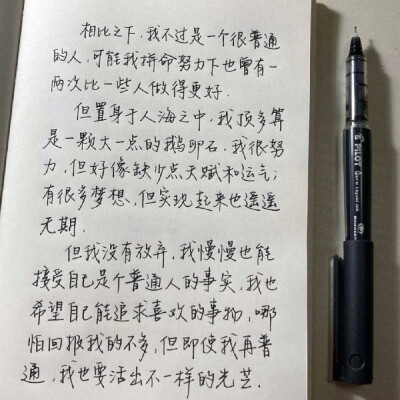 相比之下，我不过是一个很普通
的人，可能我拼命努力下也曾有一
两次比一些人做得更好.
但置身于人海之中，我顶多算
是一颗大一点的鹅卵石，我很努
力，但好像缺少点天赋和运气；
有很多梦想，但实现起来也遥遥
无期.
但我没有放弃，我慢慢也能
接受自己是个普通人的事实，我也
希望自己能追求喜欢的事物，哪
怕回报我的不多，但即使我再普
通，我也要活出不一样的光芒.
PILOT